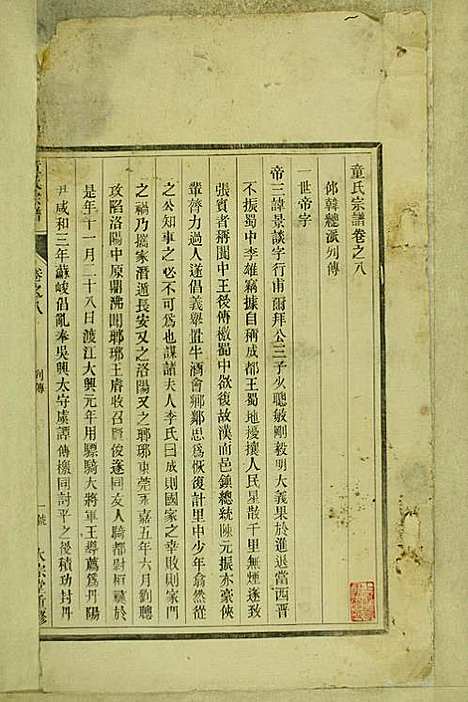 童氏宗譜卷之八
邰韓魏派列傳
一世帝字
帝三諱景談字行甫爾拜公三子火聰敏剛毅明大義果於進退當西晋
不振蜀中李雄竊據自稱成都王蜀地擾攘人民星散千里無煙遂致
張賓者稱閬中王役傳檄蜀中欲復故漢而邑鍾總統陳元振亦豪俠
輩齊力過人遂倡義舉置牛酒會鄉鄰思爲恢復計里中少年翕然從
之公知事之必不可爲也謀諸夫人李氏曰成則國家之幸敗則家門
之禍乃攜家潛遁長安又之洛陽又之瑯琊東莞永嘉五年六月劉聰
攻陷洛陽中原鼎沸聞瑯琊王睿收召賢俊遂同友人騎都尉桓彝於
是年十一月二十八日渡江大興元年用驃騎大將軍王導薦爲丹陽
尹咸和三年蘇峻倡亂奉吳興太守虞潭傳檄同討平之後積功封丹
卷之八
列傳